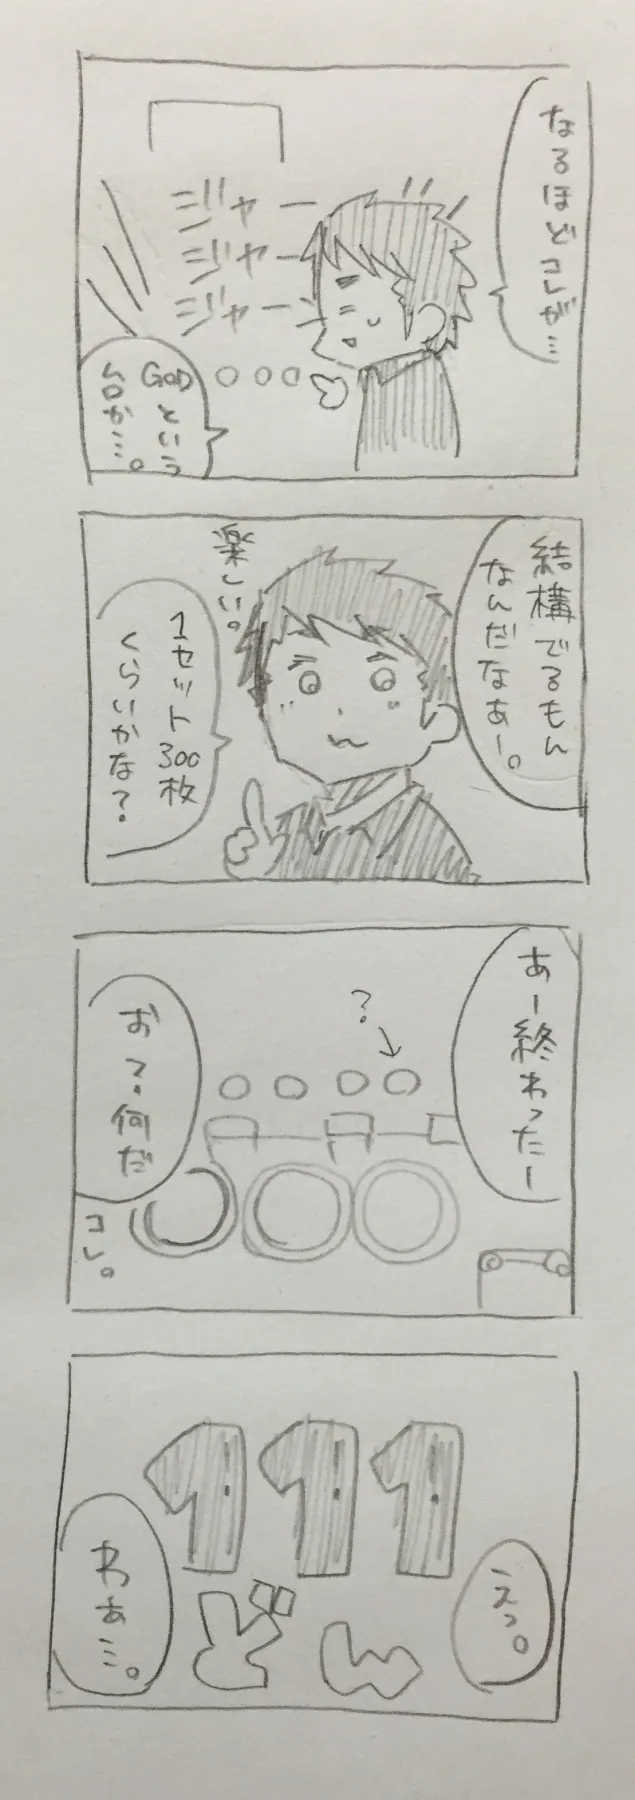 なるほどコレが…
ジャーン
ジャーン
ジャーン
GODという
台か…。
結構でるもん
なんだなあー。
楽しい。
1セット300枚
くらいかな?
あー終わったー
?
お?何だ
コレ。
えっ。
111
どん
わあ…。